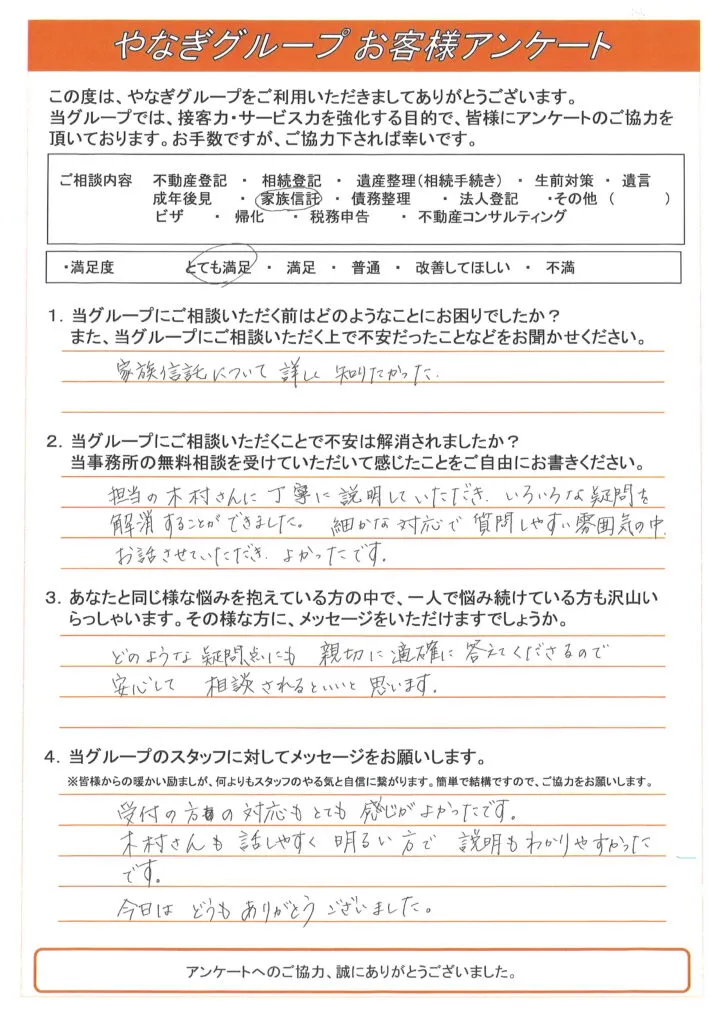 やなぎグループ お客様アンケート
この度は、やなぎグループをご利用いただきましてありがとうございます。
当グループでは、接客力・サービス力を強化する目的で、皆様にアンケートのご協力を
頂いております。お手数ですが、ご協力下されば幸いです。
ご相談内容 不動産登記 ・ 相続登記 ・ 遺産整理(相続手続き) ・ 生前対策 ・ 遺言
成年後見 ・ 家族信託 ・ 債務整理 ・ 法人登記 ・その他( )
ビザ ・ 帰化 ・ 税務申告 ・ 不動産コンサルティング
・満足度 とても満足 ・ 満足 ・ 普通 ・ 改善してほしい ・ 不満
1. 当グループにご相談いただく前はどのようなことにお困りでしたか?
また、当グループにご相談いただく上で不安だったことなどをお聞かせください。
家族信託について 詳しく 知りたかった.
2. 当グループにご相談いただくことで不安は解消されましたか?
当事務所の無料相談を受けていただいて感じたことをご自由にお書きください。
担当の木村さんに丁寧に説明していただき、いろいろな疑問を
解消することができました。 細かな対応で 質問しやすい雰囲気の中、
お話させていただき、よかったです。
3. あなたと同じ様な悩みを抱えている方の中で、一人で悩み続けている方も沢山い
らっしゃいます。その様な方に、メッセージをいただけますでしょうか。
どのような疑問点にも 親切に適確に 答えてくださるので
安心して 相談されるといいと 思います。
4. 当グループのスタッフに対してメッセージをお願いします。
※皆様からの暖かい励ましが、何よりもスタッフのやる気と自信に繋がります。簡単で結構ですので、ご協力をお願いします。
受付の方の対応もとても 感じがよかったです。
木村さんも 話しやすく 明るい方で 説明もわかりやすかった
です。
今日は どうも ありがとう ございました。
アンケートへのご協力、誠にありがとうございました。